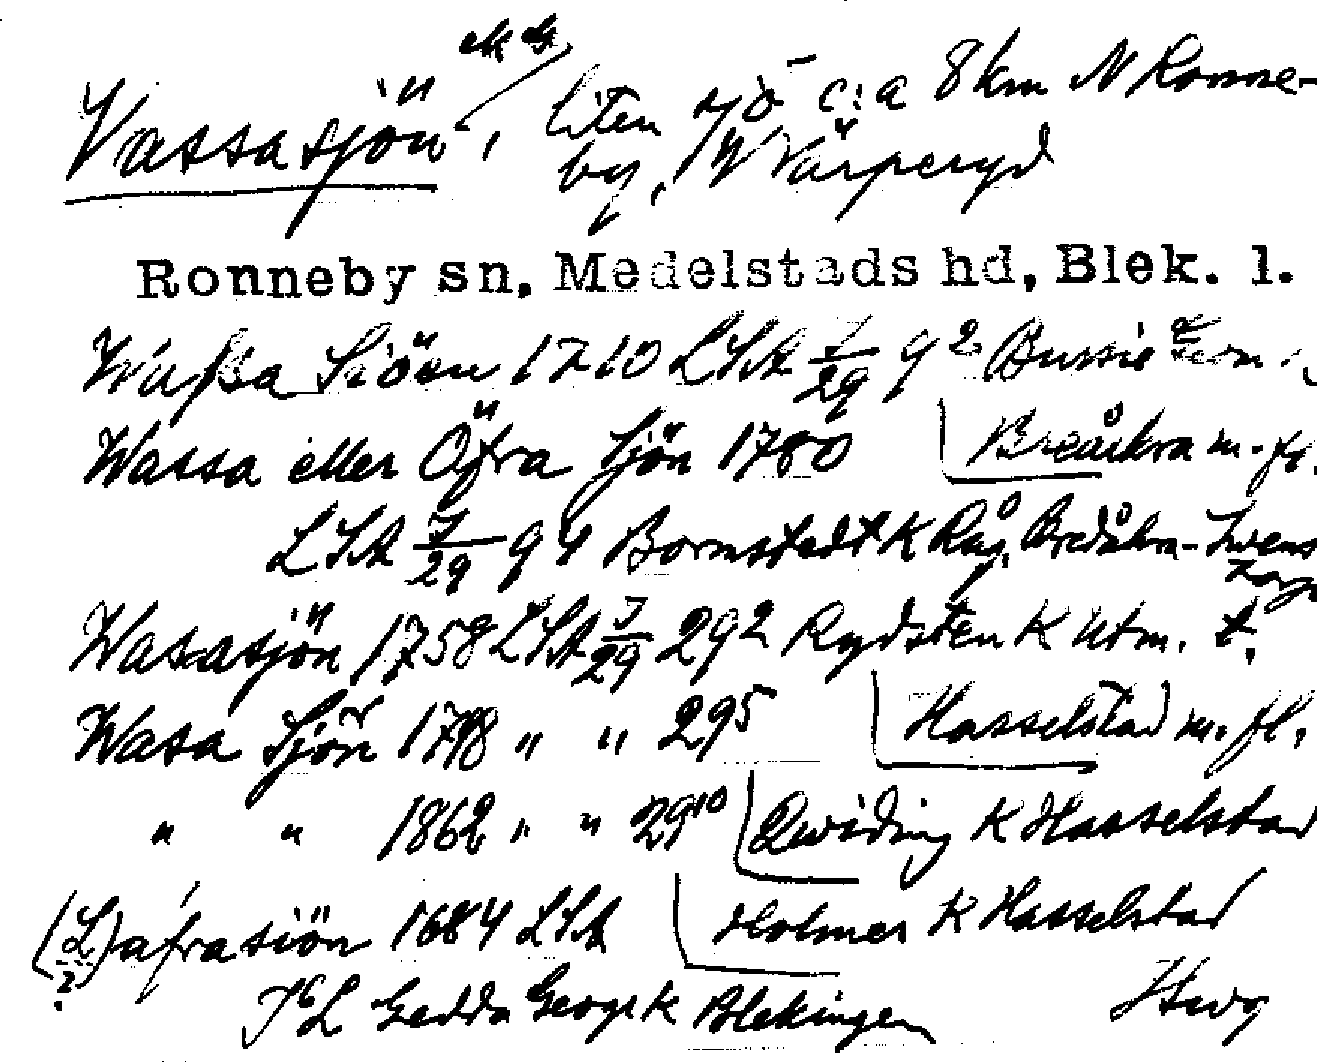 Vassasjön, liten sjö c:a 8 km N Ronne-
by, N Värperyd
Ronneby sn, Medelstads hd, Blek. l.
Waßa Siöen 1710 LSA 7/29 9² Bussie
Wassa eller Öfra Sjön 1780 Bredåkra m. fl.
LSA 7/29 94 Bornstedt K Råg. Bredåkra-
Wasasjön 1758 LSA 7/29 29² Rydsten K utm. t.
Wasa Sjön 1798 " " 29⁵ Hasselstad m. fl.
" " 1862 " " 29¹⁰ Qwiding K Hasselstad
(L?)afrasiön 1684 LSA Holmer K Hasselstad
Gedda Geogr K Blekingen